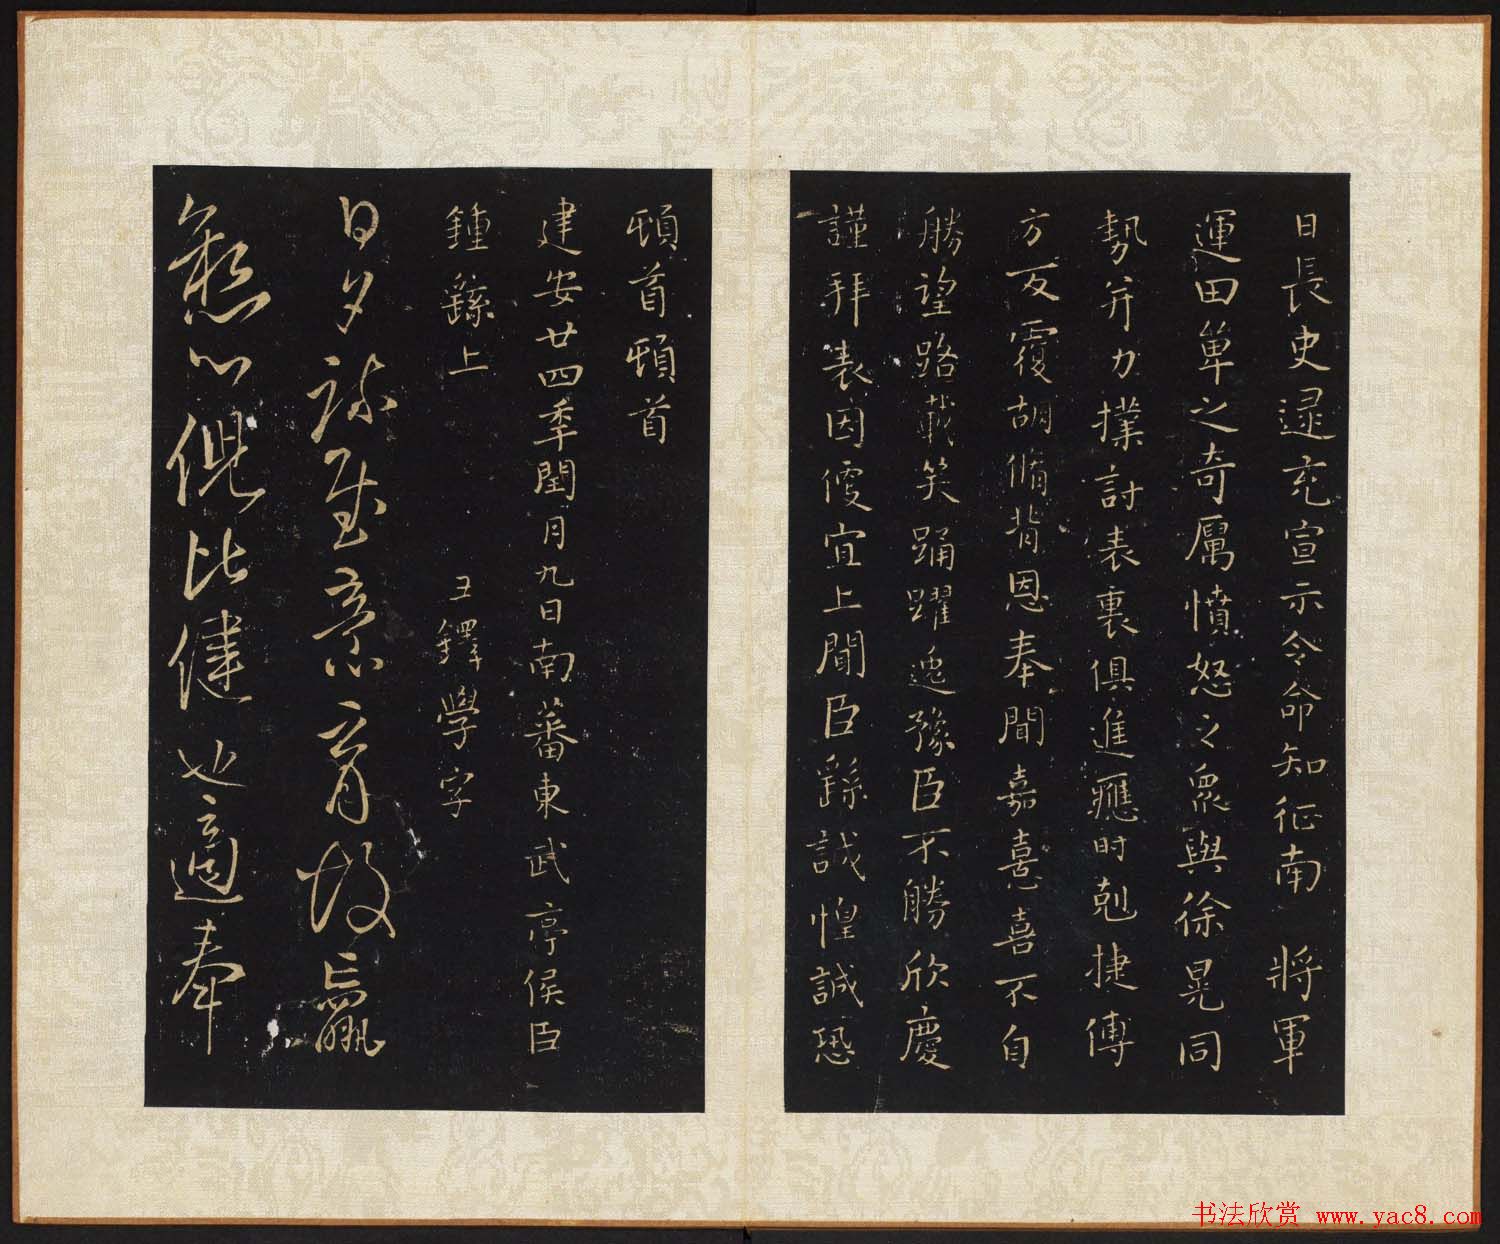 日長史逯充宣示令命知征南將軍
運田單之奇厲憤怒之眾與徐晃同
勢并力撲討表裏俱進應時剋捷傅
方反覆胡脩背恩奉聞嘉憙喜不自
勝望路載笑踊躍逸豫臣不勝欣慶
謹拜表因便宜上聞臣繇誠惶誠恐
頓首頓首
建安廿四季閏月九日南蕃東武亭侯臣
鍾繇上
王鐸學字
日夕
故
心 比 健也適奉
书法欣赏 www.yac8.com